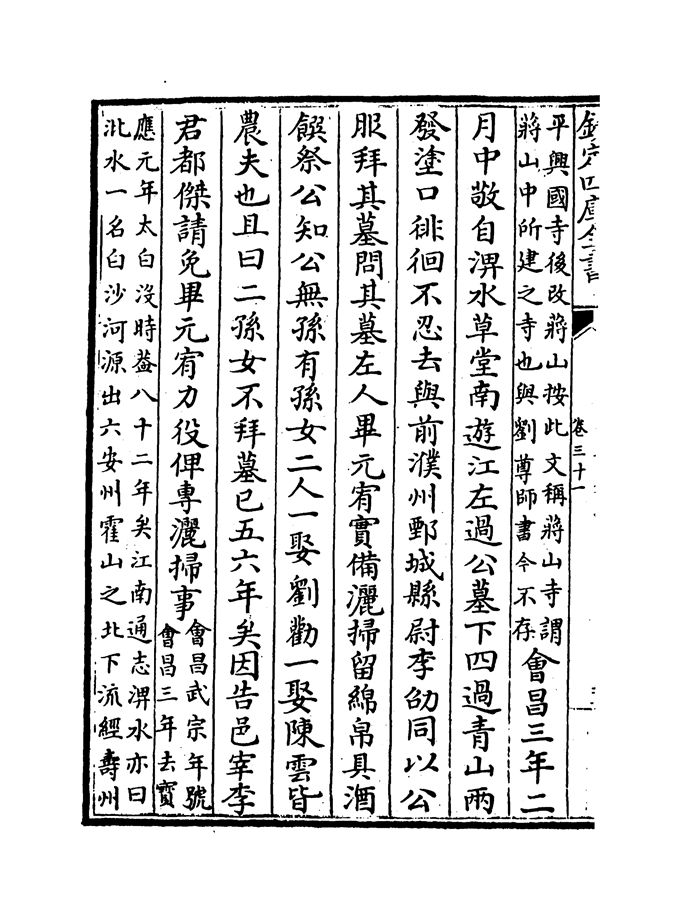 欽定四庫全書
卷三十一
平興國寺後改蔣山按此文稱蔣山寺謂
蔣山中所建之寺也與劉尊師書今不存
會昌三年二
月中敬自淠水草堂南遊江左過公墓下四過青山兩
發塗口徘徊不忍去與前濮州鄄城縣尉李劭同以公
服拜其墓問其墓左人畢元宥實備灑掃留綿帛具酒
饌祭公知公無孫有孫女二人一娶劉勸一娶陳雲皆
農夫也且曰二孫女不拜墓已五六年矣因告邑宰李
君都傑請免畢元宥力役俾專灑掃事
會昌武宗年號
會昌三年去寶
應元年太白沒時葢八十二年矣江南通志淠水亦曰
沘水一名白沙河源出六安州霍山之北下流經壽州